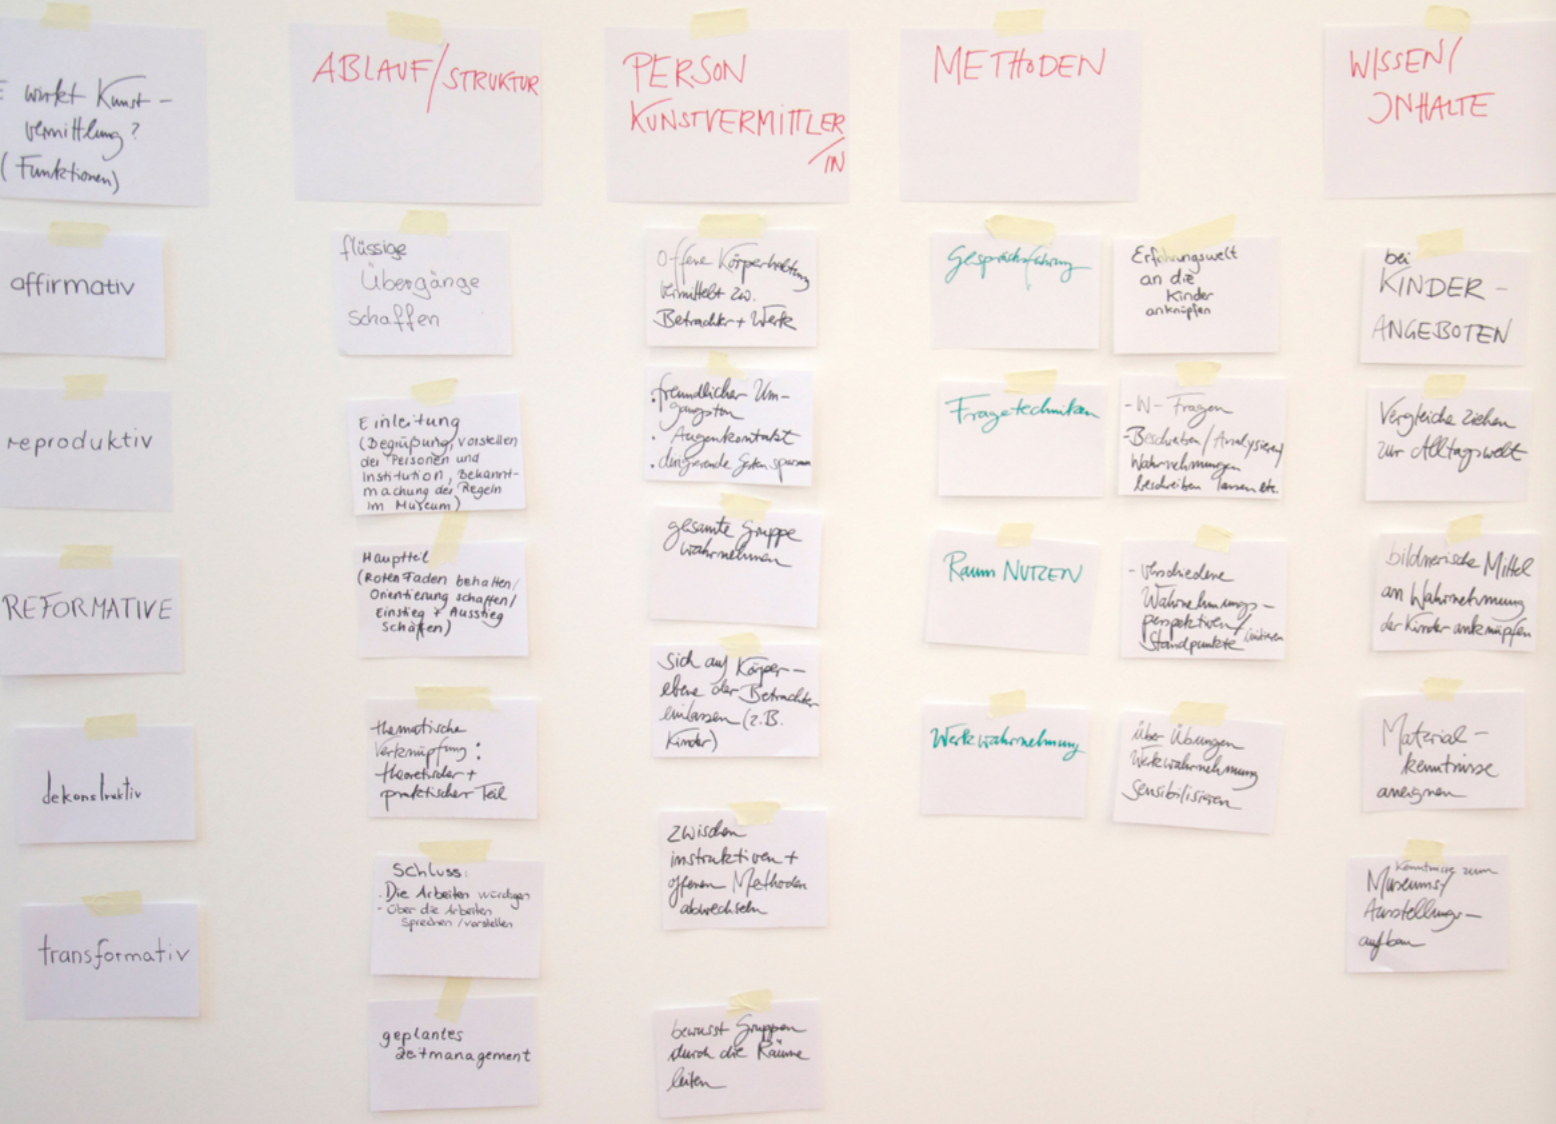 wirkt Kunst-
vermittlung?
(Funktionen)
affirmativ
reproduktiv
REFORMATIVE
dekonstruktiv
transformativ
ABLAUF/STRUKTUR
flüssige
Übergänge
schaffen
Einleitung
(Begrüßung, Vorstellen
der Personen und
Institution, Bekannt-
machung der Regeln
im Museum)
Hauptteil
(Roten Faden behalten/
Orientierung schaffen/
Einstieg + Ausstieg
schaffen)
thematische
Verknüpfung:
theoretischer +
praktischer Teil
Schluss:
- Die Arbeiten würdigen
- Über die Arbeiten
sprechen/vorstellen
geplantes
Zeitmanagement
PERSON
KUNSTVERMITTLER
/IN
Offene Körperhaltung
vermittelt zw.
Betrachter + Werk
. freundlicher Um-
gangston
. Augenkontakt
. dirigierende Gesten sparsam
gesamte Gruppe
wahrnehmen
sich auf Körper-
ebene der Betrachter
einlassen (z.B.
Kinder)
zwischen
instruktiven +
offenen Methoden
abwechseln
bewusst Gruppen
durch die Räume
leiten
METHODEN
Gesprächsführung
Erfahrungswelt
an die
Kinder
anknüpfen
Fragetechniken
- W- Fragen
- Beschreiben/Analysieren
Wahrnehmungen
beschreiben lassen etc.
Raum NUTZEN
- verschiedene
Wahrnehmungs-
perspektiven/
Standpunkte
Werkwahrnehmung
über Übungen
Werkwahrnehmung
sensibilisieren
WISSEN/
INHALTE
bei
KINDER-
ANGEBOTEN
Vergleiche ziehen
zur Alltagswelt
bildnerische Mittel
an Wahrnehmung
der Kinder anknüpfen
Material-
kenntnisse
aneignen
Kenntnisse zum
Museums/
Ausstellungs-
aufbau